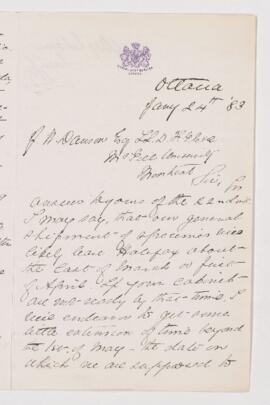 Ottawa
Jany 24th '83
J W Dawson Esq LL.D. F.R.S. &c
McGill University
Montreal
Sir, In
answer to yours of the 22nd inst.
I may say, that our general
shipment of specimens will
likely leave Halifax about
the last of March or first
of April. If your cabinet
are not ready by that time, I
will endeavor to get some
little extension of time beyond
the 1st of May the date in
which we are supposed to